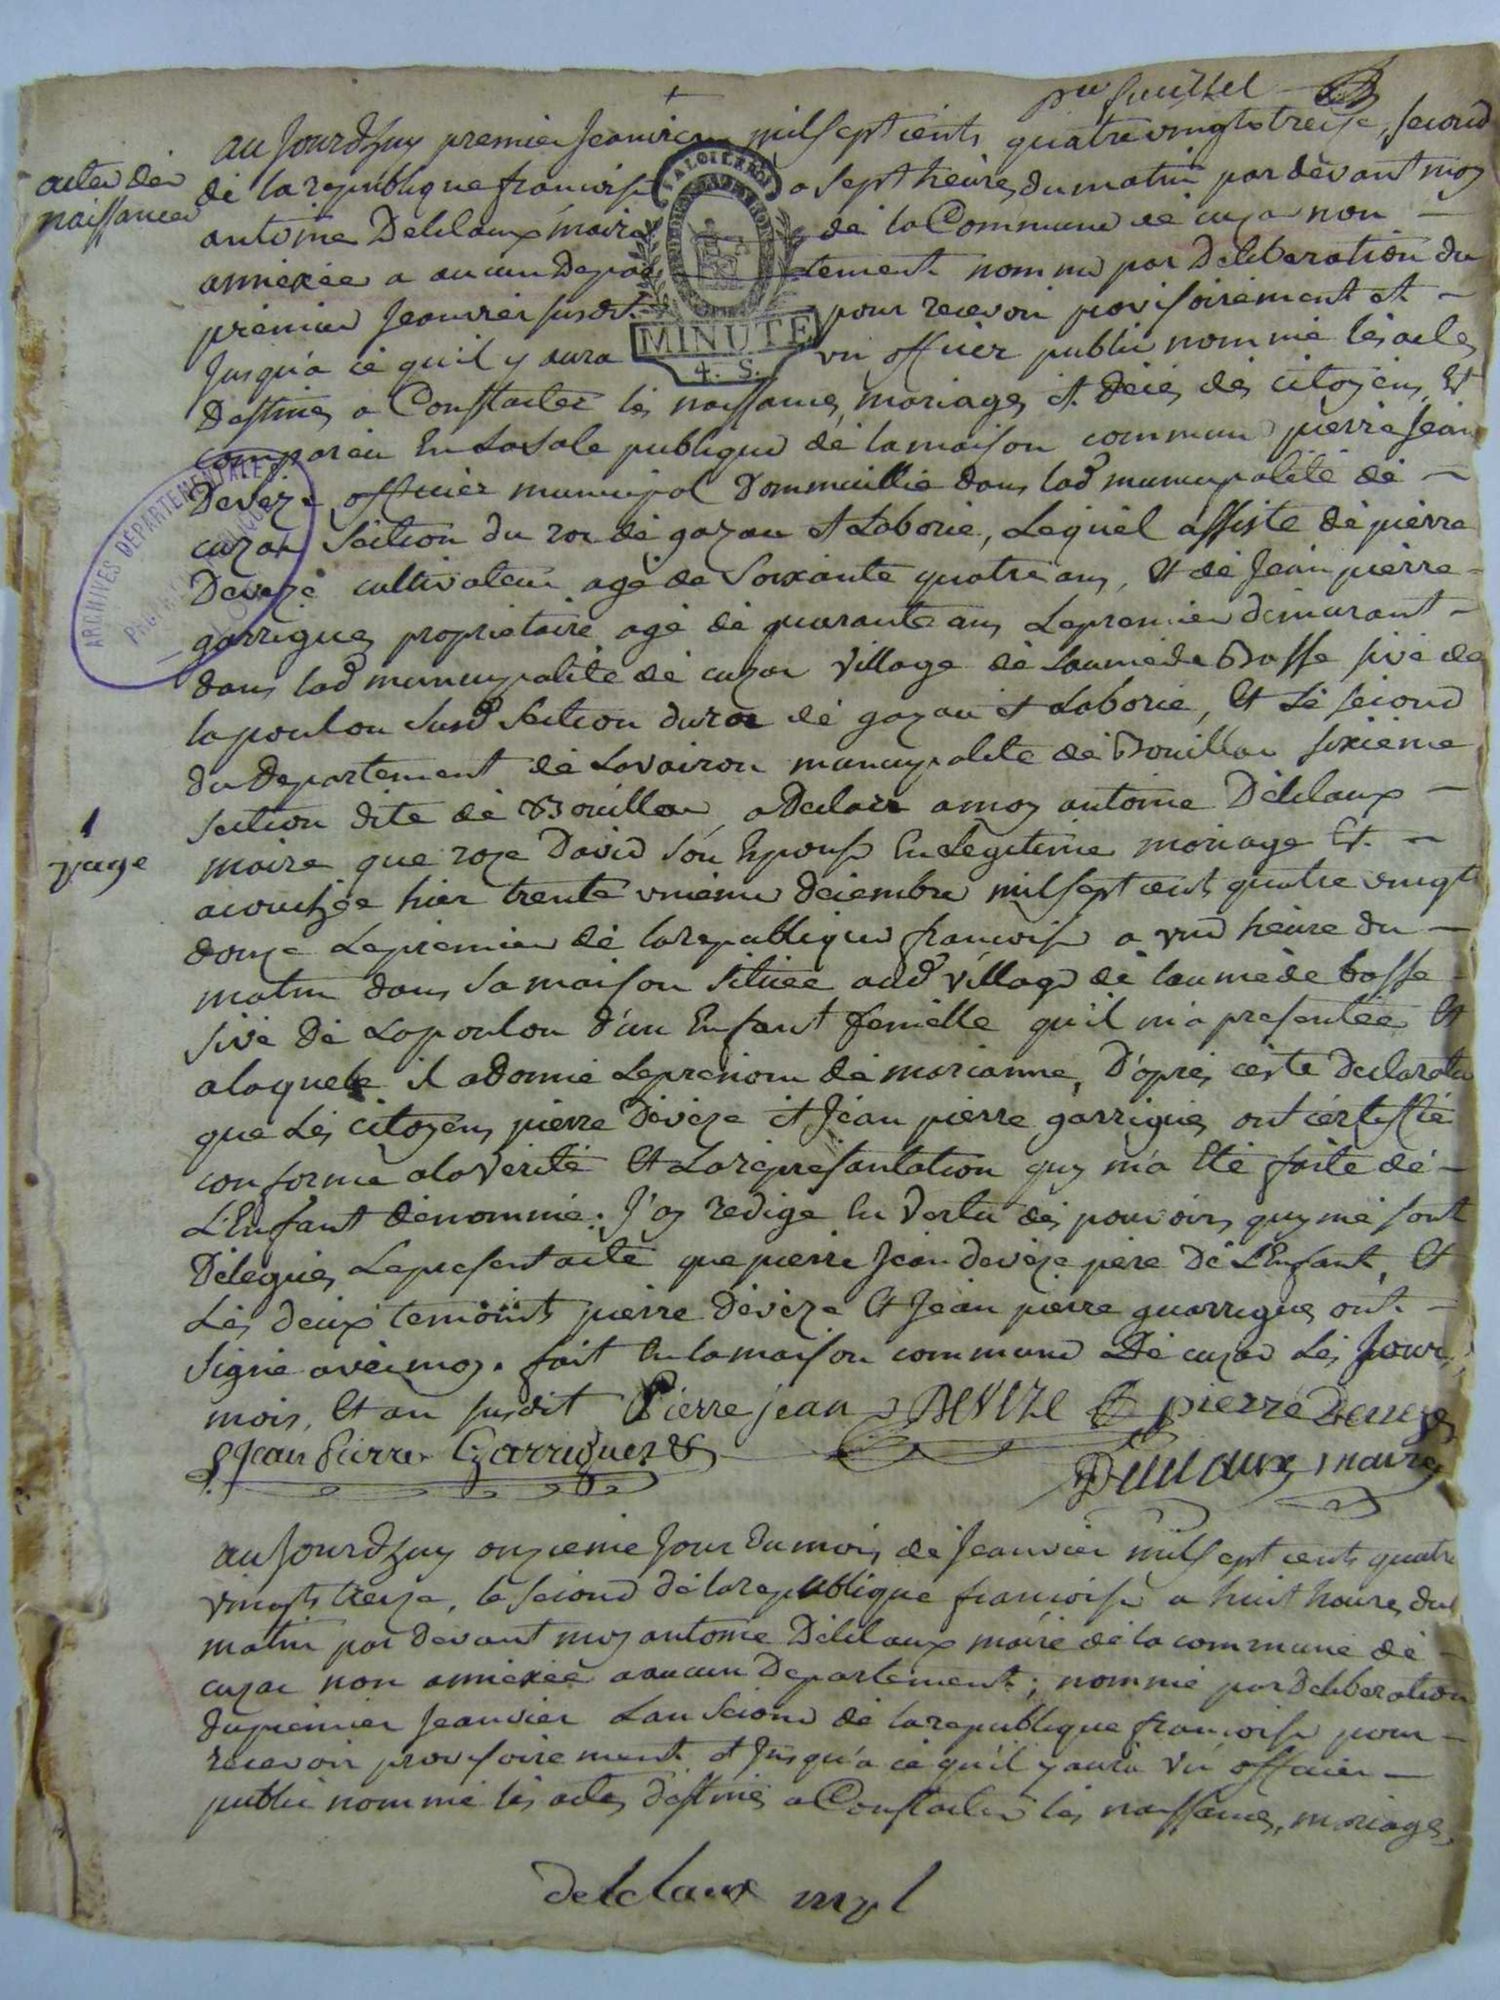 pr feuillet
actes des
naissances
aujourdhuy premier Jeanvier milsept cents quatrevingts treize, second
de la republique francoise a sept heures du matin par devant moy
antoine Delclaux maire de la Commune de cuzac non
annexée a aucun Depar tement nommé par Deliberation du
premier Jeanvier susdt pour recevoir provisoirement et
Jusqu'a ce quil y aura un officier public nommé les actes
Destinés a Constacter les naissances, mariages et decés des citoyens, Et
compareu En La sale publique de la maison commune pierre Jean
Deveze officier municipal Dommicillié dans lad municipalité de
cuzac Section du roc de gazau et Laborie, Lequel assisté de pierre
Deveze cultivateur agé de Soixante quatre ans, Et de Jean pierre
garrigues propriétaire agé de quarante ans Le premier demurant
dans lad municipalité de cuzac village de Laumede Basse sive de
lapoulou susd Section du roc de gazau et Laborie, Et Le second
du departement de Lavairon municipalité de Bouillac sixieme
Section dite de Bouillac, a Declaré a moy antoine Delclaux
1
page
maire que roze David son Epouse En Legitime mariage Et
acouchée hier trente unieme decembre milsept cents quatre vingts
douze Le premier de la republique francoise a une heure du
matin dans sa maison située aud village de laumede basse
sive de Lapoulou d'un Enfant femelle quil m'a presentée Et
a laquele il a donné Le prenom de marianne, D'apres ceste declaration
que Les citoyens pierre Deveze et Jean pierre garrigues ont certiffié
conforme a la verité Et La representation quy m'a Eté faite de
L'Enfant denommé; J'ay redigé En vertu des pouvoirs quy me sont
Delegués Le present acte que pierre Jean deveze pere de L'Enfant, Et
Les deux temoints pierre Deveze Et Jean pierre guarrigues ont
signé avec moy. fait En la maison commune De cuzac Les Jour,
mois, Et an susdit Pierre jean DEVEZE pierre Deveze
Jean Pierre Garrigues
Delclaux maire
aujourdhuy onzieme Jour du mois de Jeanvier milsept cents quatre
vingts treize, le second de la republique francoise a huit heures du
matin par devant moy antoine Delclaux maire de la commune de
cuzac non annexée a aucun Departement; nommé par Deliberation
du premier Jeanvier Lan second de la republique francoise pour
recevoir provisoirement et Jusqu'a ce quil y aura un officier
public nommé les actes destinés a Constacter les naissances, mariages,
delclaux mpl
MINUTE
4. S.
LA LOI LE ROI
ARCHIVES DEPARTEMENTALES